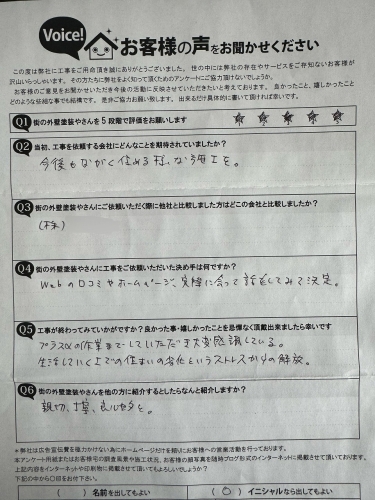 Voice!
お客様の声をお聞かせください
この度は弊社に工事をご用命頂き誠にありがとうございました。世の中には弊社の存在やサービスをご存知ないお客様が
沢山いらっしゃいます。その方たちに弊社をよく知って頂くためのアンケートにご協力頂けないでしょうか。
お客様のご意見をお聞かせいただき今後の活動に反映させていただきたいと考えております。良かったこと、嬉しかったこと
どのような些細な事でも結構です。是非ご協力お願い致します。出来るだけ具体的に書いて頂ければ幸いです。
Q1 街の外壁塗装やさんを5段階で評価をお願いします
Q2 当初、工事を依頼する会社にどんなことを期待されていましたか?
今後もながく住める様な施工を。
Q3 街の外壁塗装やさんにご依頼いただく際に他社と比較しました方はどこの会社と比較しましたか?
(株)
Q4 街の外壁塗装やさんに工事をご依頼いただいた決め手は何ですか?
Webの口コミやホームページ、実際に会って話をしてみて決定。
Q5 工事が終わってみていかがですか?良かった事・嬉しかったことを忌憚なく頂戴出来ましたら幸いです
プラスαの作業までしていただき大変感謝している。
生活していく上での住まいの劣化というストレスからの解放。
Q6 街の外壁塗装やさんを他の方に紹介するとしたらなんと紹介しますか?
親切、丁寧、良い仕事を。
*弊社は広告宣伝費を極力かけない為にホームページだけを頼りにお客様への営業活動を行っております。
本アンケート用紙またはお客様宅の調査風景や施工状況、お客様の顔写真を随時ブログ形式のインターネットに掲載させて頂いております。
上記内容をインターネットや印刷物に掲載させて頂いてもよろしいでしょうか?
下記の中から〇印をお付下さい。
( ) 名前を出してもよい
( ) イニシャルなら出してもよい